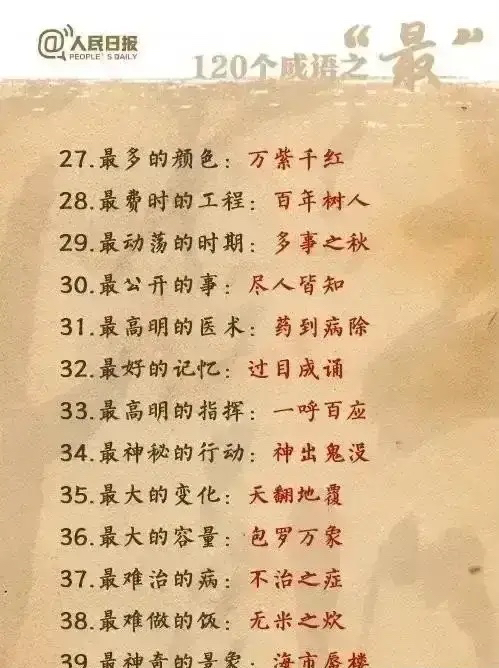 @人民日报
PEOPLE'S DAILY
120个成语之“最”
27.最多的颜色：万紫千红
28.最费时的工程：百年树人
29.最动荡的时期：多事之秋
30.最公开的事：尽人皆知
31.最高明的医术：药到病除
32.最好的记忆：过目成诵
33.最高明的指挥：一呼百应
34.最神秘的行动：神出鬼没
35.最大的变化：天翻地覆
36.最大的容量：包罗万象
37.最难治的病：不治之症
38.最难做的饭：无米之炊
39.最神奇的景象：海市蜃楼